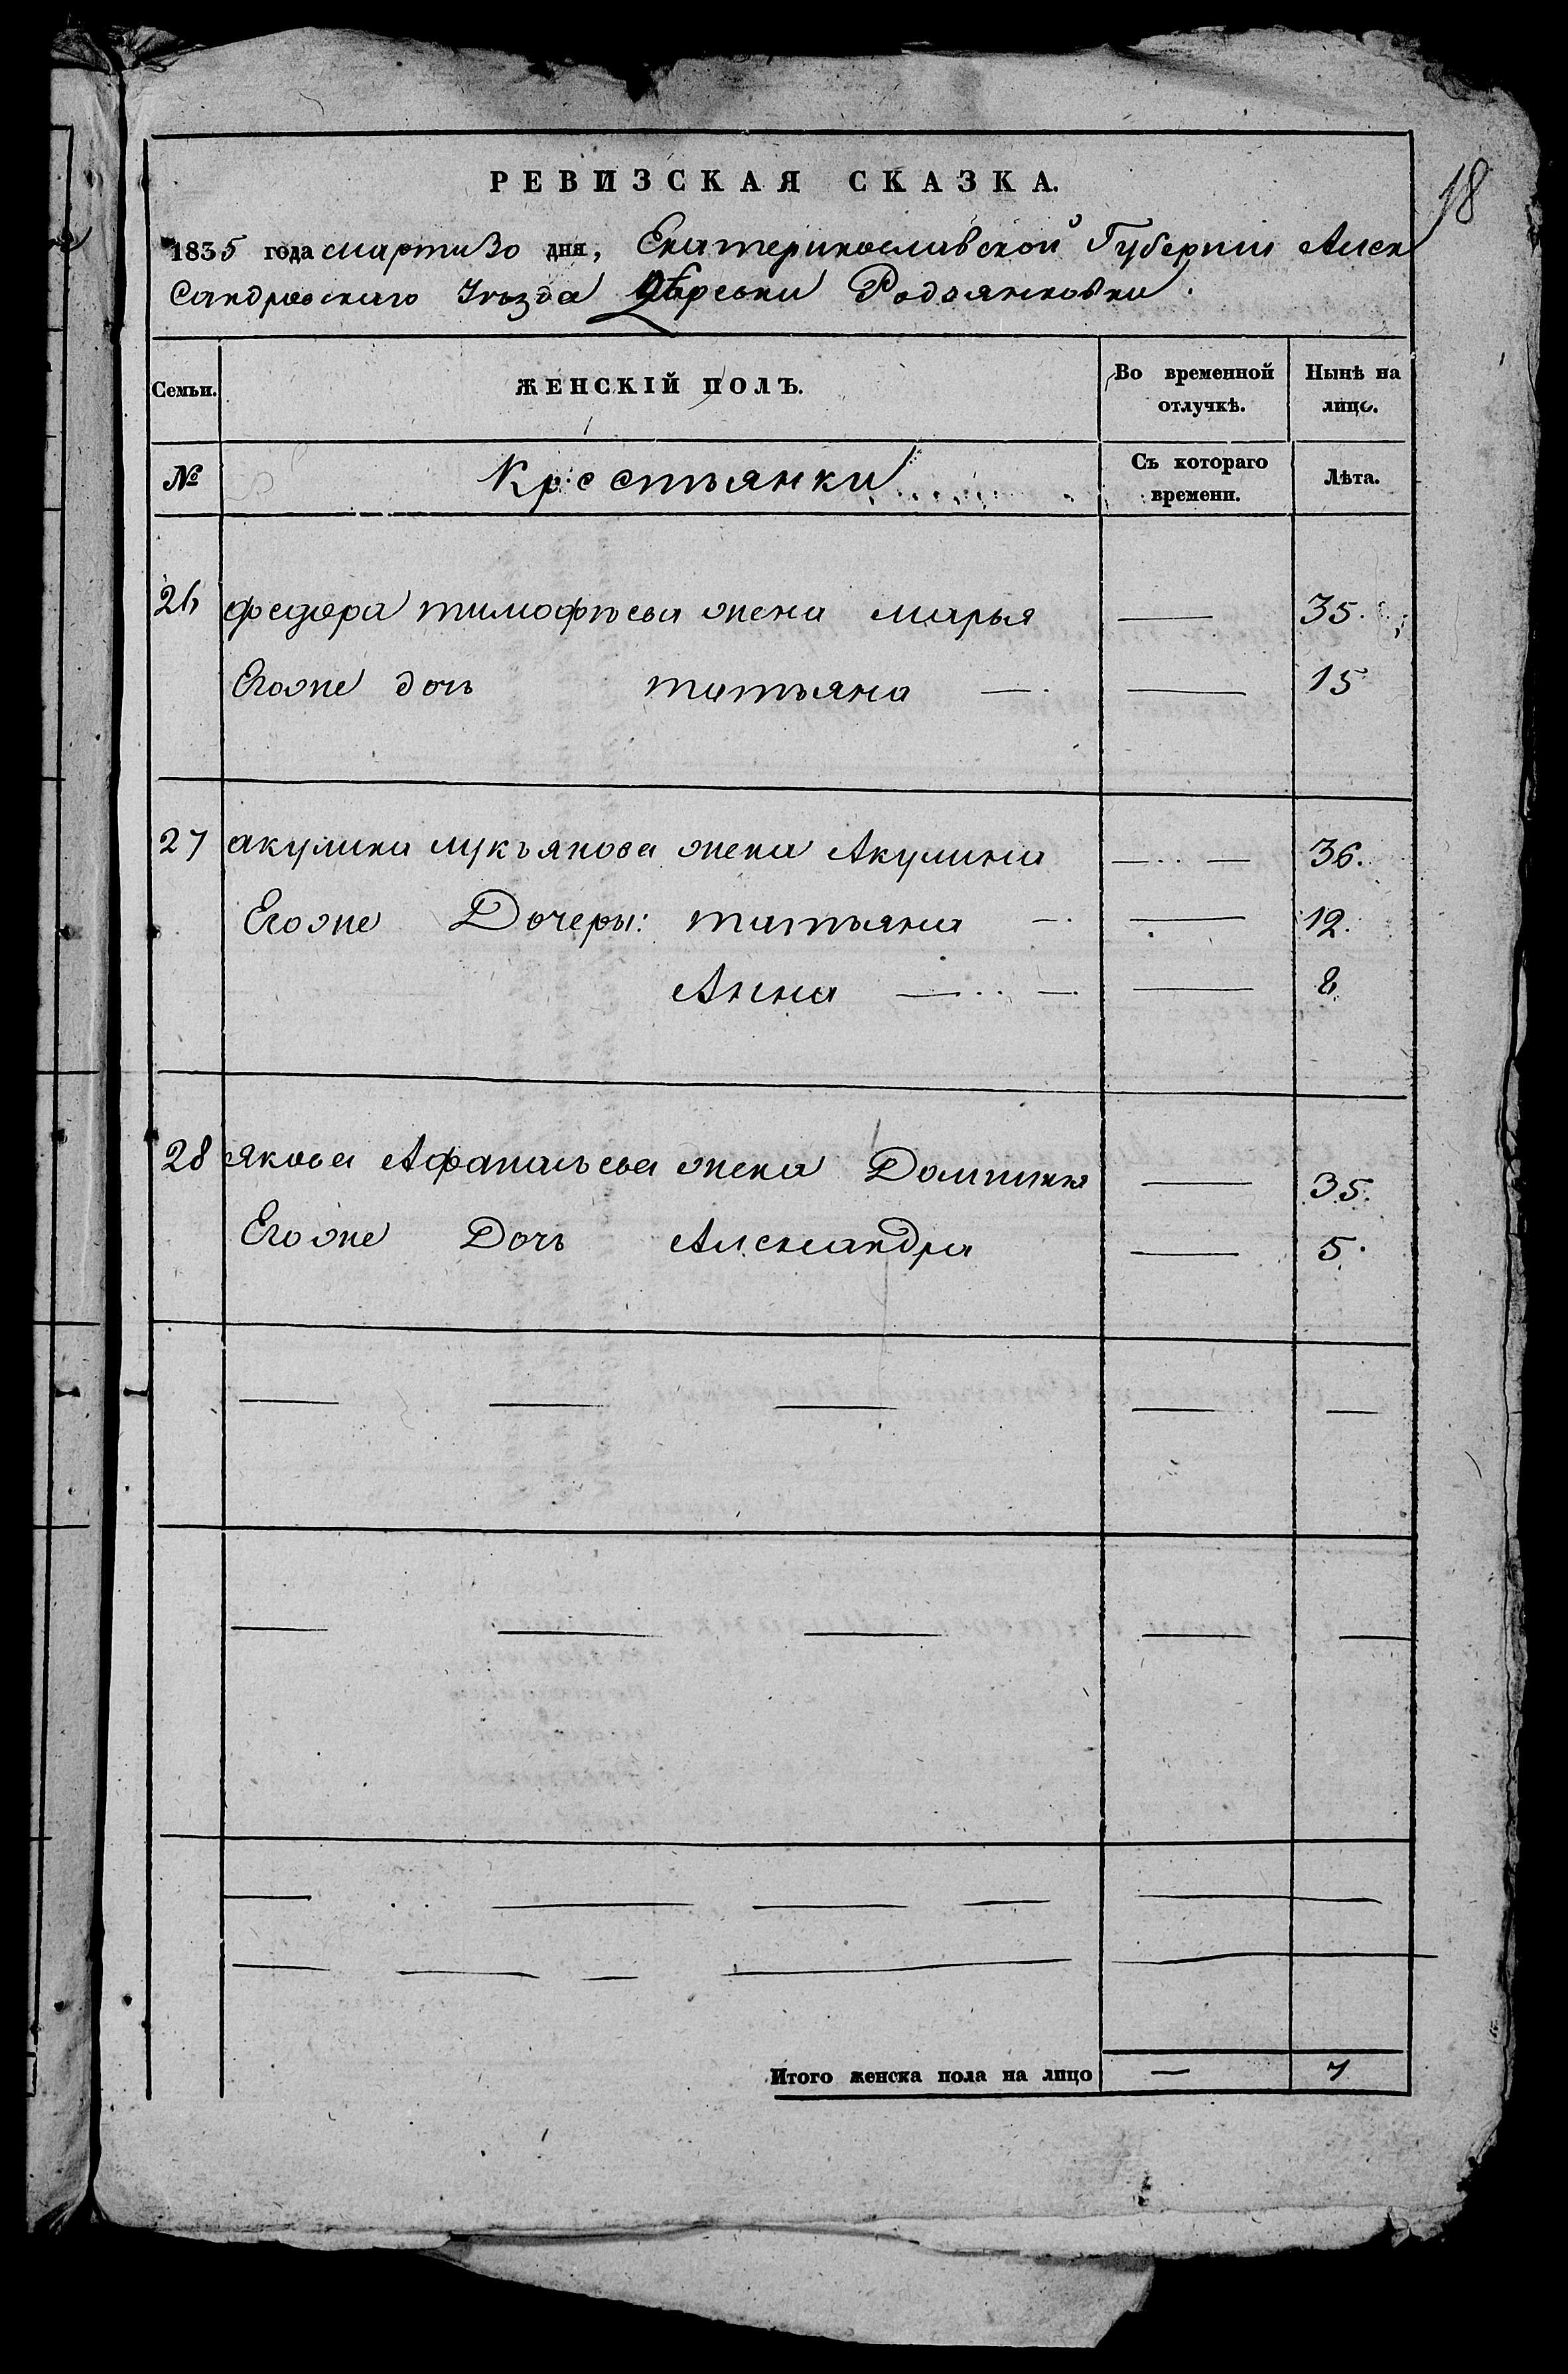 18
РЕВИЗСКАЯ СКАЗКА.
1835 года марта 30 дня, Екатеринославской Губернии Алек
сандровскаго Уѣзда Деревни Родзянковки.
Семьи. ЖЕНСКІЙ ПОЛЪ. Во временной отлучкѣ. Нынѣ на лицо.
№ Крестьянки Съ котораго времени. Лѣта.
26 федора тимофѣева жена марья — 35.
Егоже дочь татьяна — 15
27 акулина лукъянова жена Акулина — 36.
Егоже Дочеры: татьяна — 12.
Анна — 8
28 якова Афанасьева жена Домникия — 35.
Егоже Дочь Александра — 5.
Итого женска пола на лицо — 7